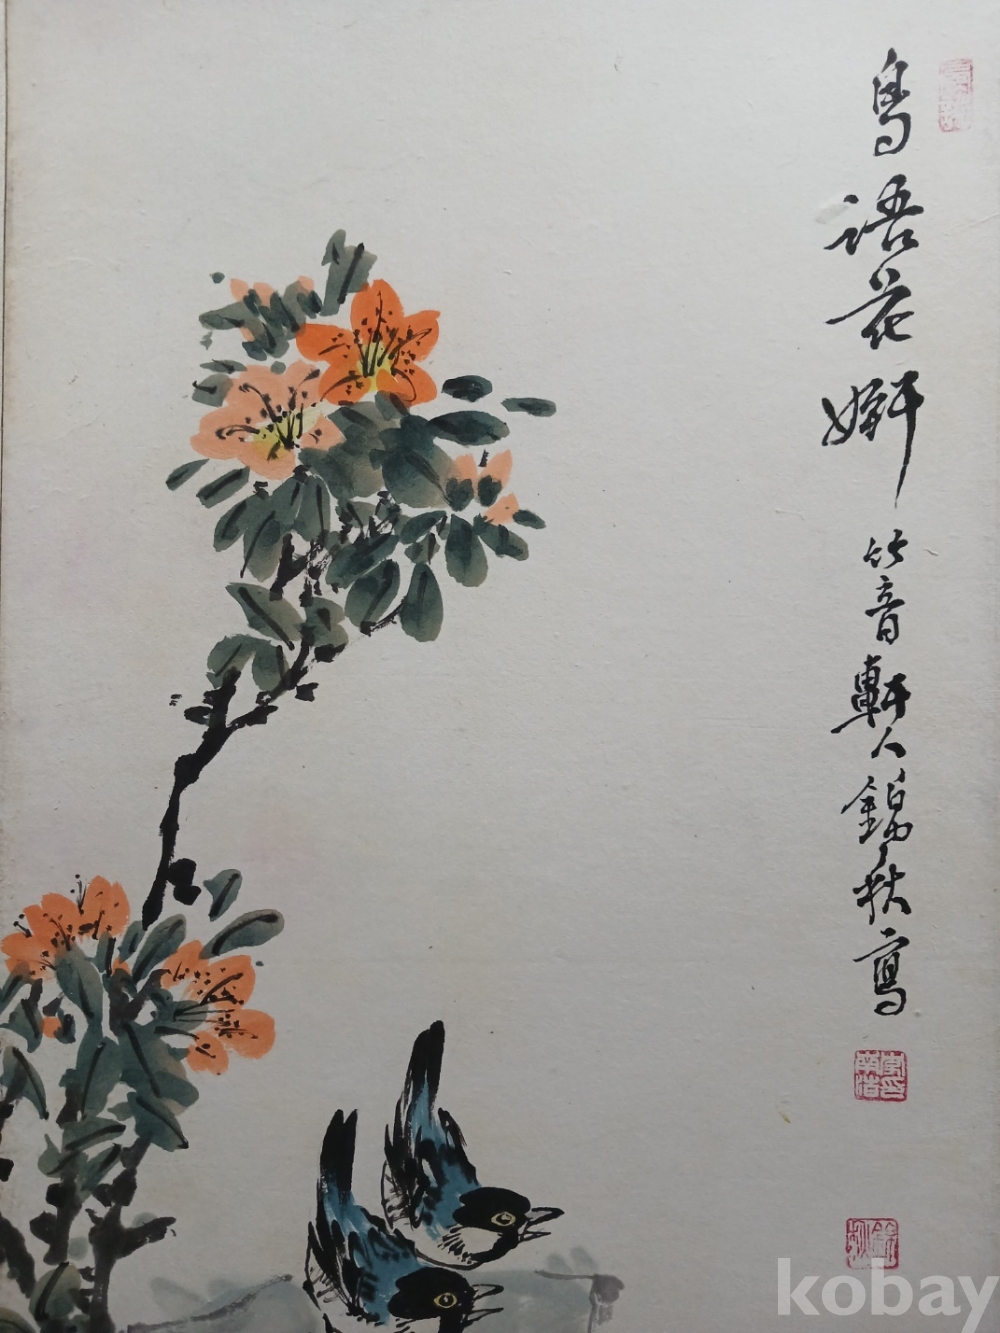 鳥语花妍 竹音軒人錦秋寫
kobay